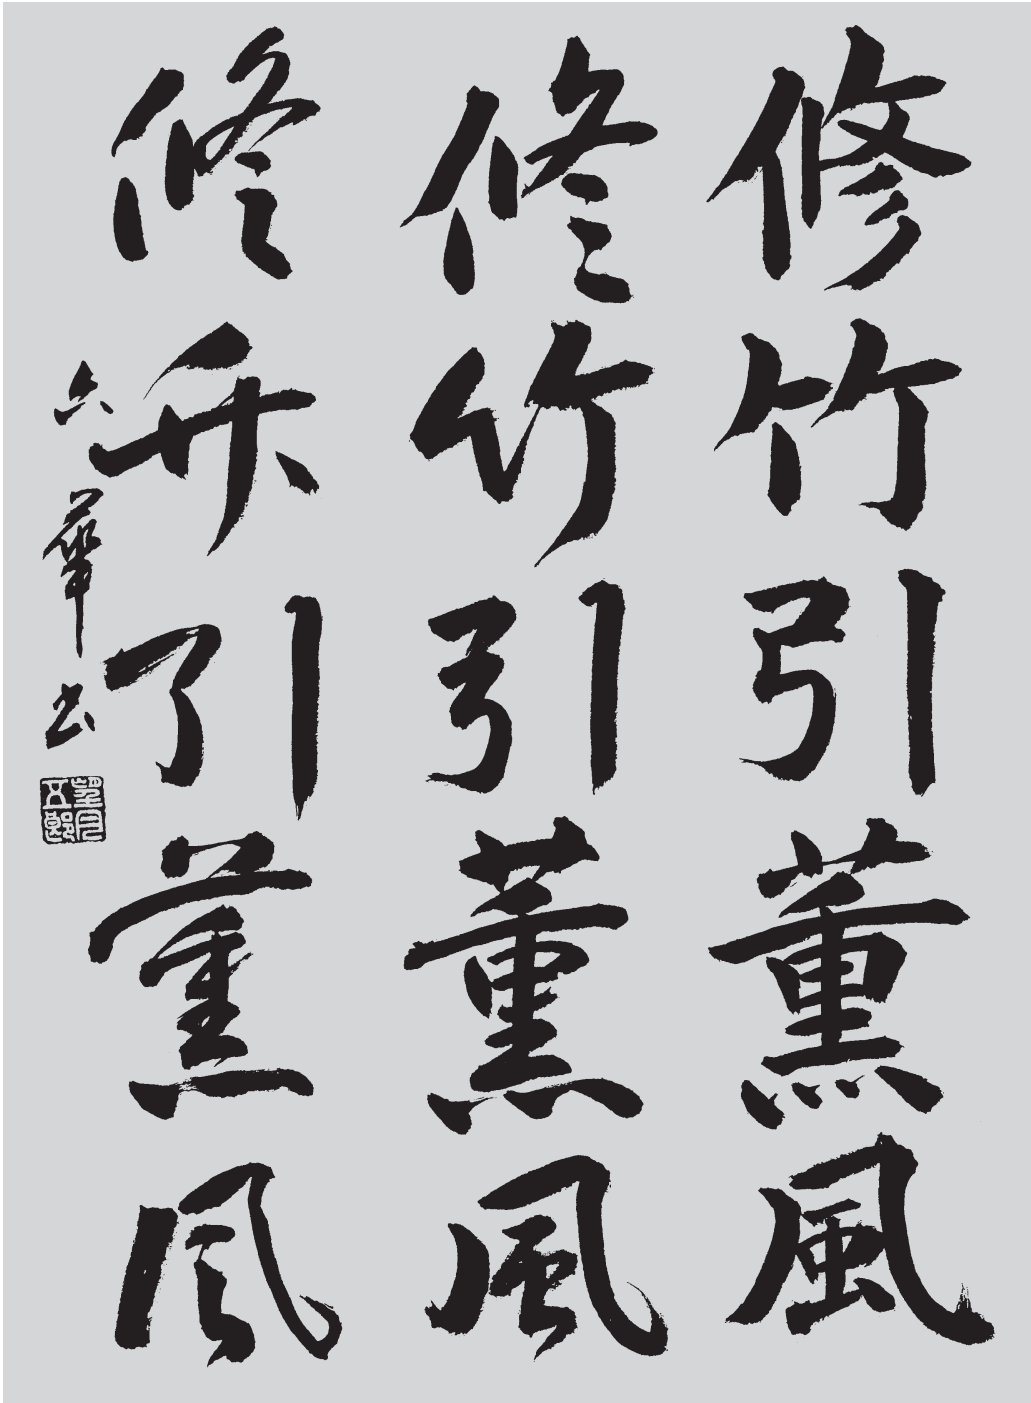 修竹引薫風
修竹引薫風
修竹引薫風
六華書